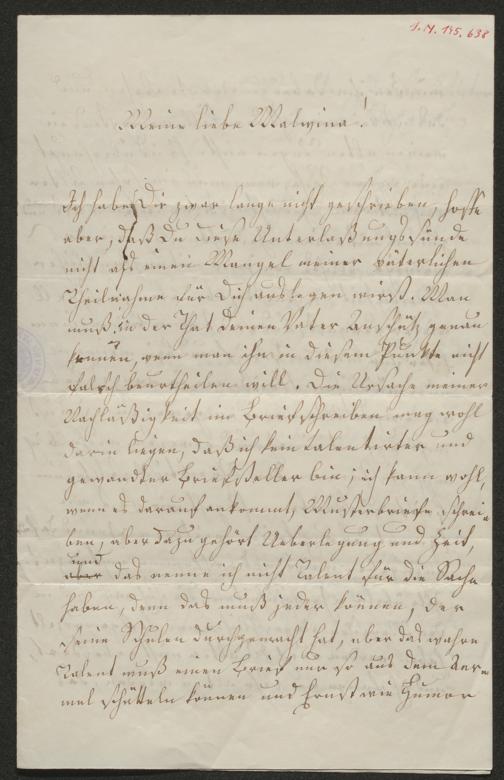 I. N. 195.638
Meine liebe Malwina!
Ich habe Dir zwar lange nicht geschrieben, hoffe
aber, daß Du diese Unterlaßungssünde
nicht als einen Mangel meiner väterlichen
Theilnahme für Dich auslegen wirst. Man
muß in der That deinen Vater Anschütz genau
kennen, wenn man ihn in diesem Punkte nicht
falsch beurtheilen will. Die Ursache meiner
Nachläßigkeit im Briefschreiben mag wohl
darin liegen, daß ich kein talentirter und
gewandter Briefsteller bin; ich kann wohl,
wenn es darauf ankommt, Musterbriefe schrei-
ben, aber dazu gehört Ueberlegung und Zeit,
und
aber das nenne ich nicht Talent für die Sache
haben, denn das muß jeder können, der
seine Schulen durchgemacht hat, aber das wahre
Talent muß einen Brief nur so aus dem Aer-
mel schütteln können und Ernst wie Humor